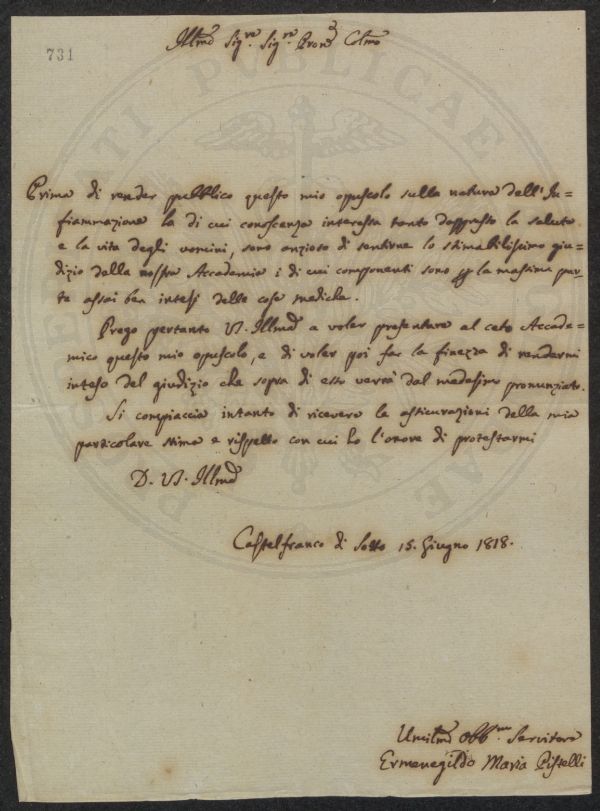 731
Illmo Sigre. Sigre. Prone Colmo
Prima di render pubblico questo mio opuscolo sulla natura dell'In=
fiammazione la di cui conoscenza interessa tanto dappresso la salute
e la vita degli uomini, sono anzioso di sentirne lo stimabilissimo giu=
dizio della nostra Accademia i di cui componenti sono p la massima par=
te assai ben intesi delle cose mediche.
Prego pertanto VS. Illma a voler presentare al ceto Accade=
mico questo mio opuscolo, e di voler poi far la finezza di rendermi
inteso del giudizio che sopra di esso verrà dal medesimo pronunziato.
Si compiaccia intanto di ricevere le assicurazioni della mia
particolare stima e rispetto con cui ho l'onore di protestarmi
D. VS. Illma
Castelfranco di Sotto 15. Giugno 1818.
Umilmo Obbmo Servitore
Ermenegildo Maria Pistelli